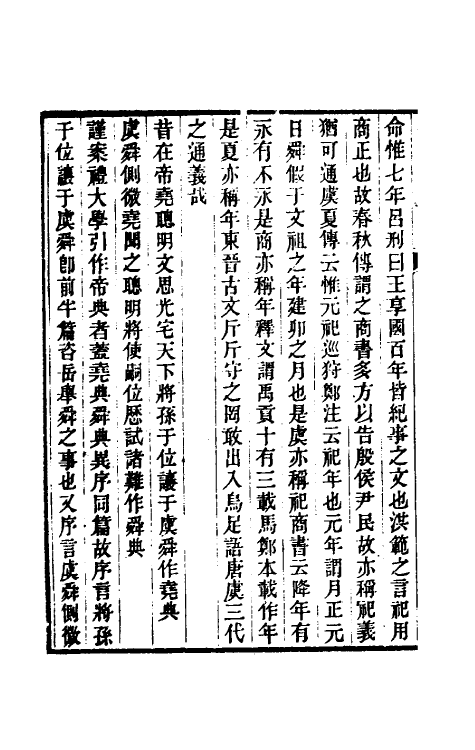 命惟七年呂刑曰王享國百年皆紀事之文也洪範之言祀用
商正也故春秋傳謂之商書多方以告殷侯尹民故亦稱祀義
猶可通虞夏傳云惟元祀巡狩鄭注云祀年也元年謂月正元
日舜假于文祖之年建卯之月也是虞亦稱祀商書云降年有
永有不永是商亦稱年釋文謂禹貢十有三載馬鄭本載作年
是夏亦稱年東晉古文斤斤守之罔敢出入烏足語唐虞三代
之通義哉
昔在帝堯聰明文思光宅天下將孫于位讓于虞舜作堯典
虞舜側微堯聞之聰明將使嗣位歷試諸難作舜典
謹案禮大學引作帝典者蓋堯典舜典異序同篇故序言將孫
于位讓于虞舜卽前半篇咨岳舉舜之事也又序言虞舜側微